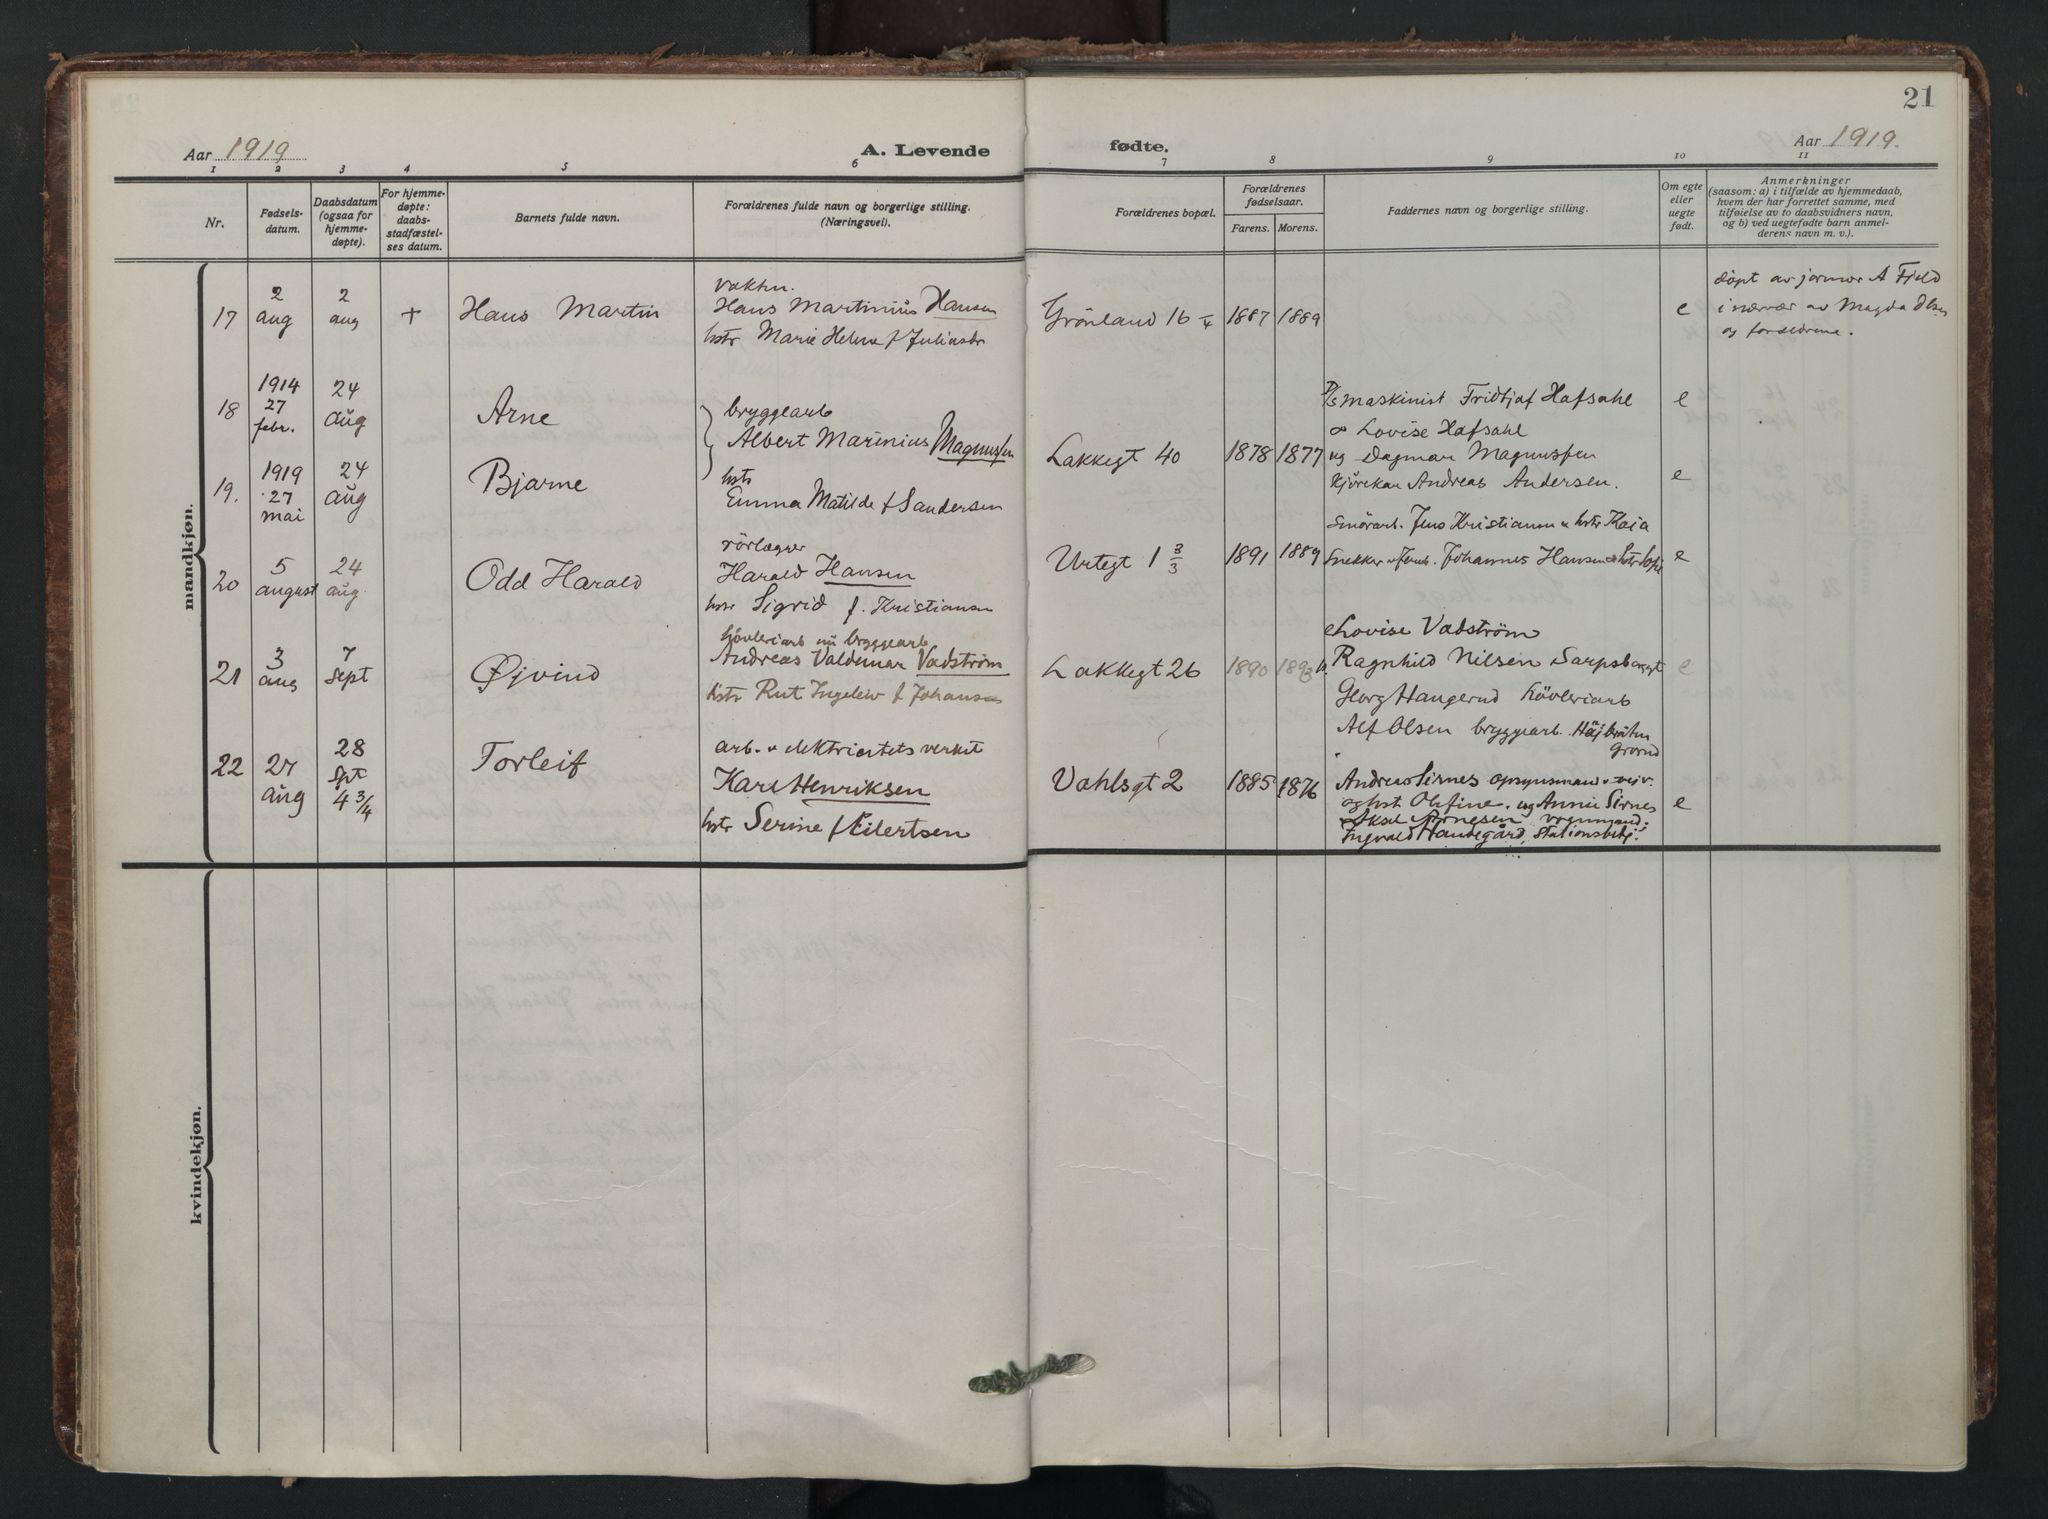 21
Aar 1919
A. Levende
fødte.
Aar 1919.
1 2 3 4 5 6 7 8 9 10 11
Nr.
Fødsels-
datum.
Daabsdatum
(ogsaa for
hjemme-
døpte).
For hjemme-
døpte:
daabs-
stadfæstel-
ses datum.
Barnets fulde navn.
Forældrenes fulde navn og borgerlige stilling.
(Næringsvei).
Forældrenes bopæl.
Forældrenes
fødselsaar.
Farens. Morens.
Faddernes navn og borgerlige stilling.
Om egte
eller
uegte
født.
Anmerkninger
(saasom: a) i tilfælde av hjemmedaab,
hvem der har forrettet samme, med
tilføielse av to daabsvidners navn,
og b) ved uegtefødte barn anmel-
derens navn m. v.).
mandkjøn.
17
2
aug
2
aug
+
Hans Martin
vaktm.
Hans Martinius Hansen
hstr Marie Helene f Juliusdr
Grönland 16
1887 1889
e
døpt av jormor A Fjeld
i nærvær av Magda Olsen
og forældrene.
18
1914
27
febr.
24
aug
Arne
bryggearb
Albert Marinius Magnussen
hstr
Emma Matilde f Sandersen
Lakkegt 40
1878 1877
maskinist Fridtjof Hafsahl
Lovise Hafsahl
og Dagmar Magnussen
Andreas Andersen.
e
19.
1919
27
mai
24
aug
Bjarne
e
20
5
august
24
aug.
Odd Harald
rörlægger
Harald Hansen
hstr Sigrid f. Kristiansen
Urtegt 1 3/3
1891 1889
Jens Kristiansen hstr Kaja
Snekker Johannes Hansen hstr Sofie
e
21
3
aug
7
Sept
Øjvind
hövleriarb nu bryggearb
Andreas Valdemar Vadström
hstr Rut Ingeleiv f Johansen
Lakkegt 26
1890 1893
Lovise Vadström
Ragnhild Nilsen Sarpsborggt
Georg Haugerud hövleriarb
Alf Olsen bryggearb. Höjbråten
Grorud
e
22
27
aug
28
Spt
4 3/4
Torleif
arb. v elektricitets verket
Karl Henriksen
hstr Serine f Eilertsen
Vahlsgt 2
1885 1876
Andreas Sirnes opsynsmand v veiv.
og hst Olefine. og Annie Sirnes
Aksel vognmand,
Ingvald Haudegård, Stationsbetj.
e
kvindekjøn.